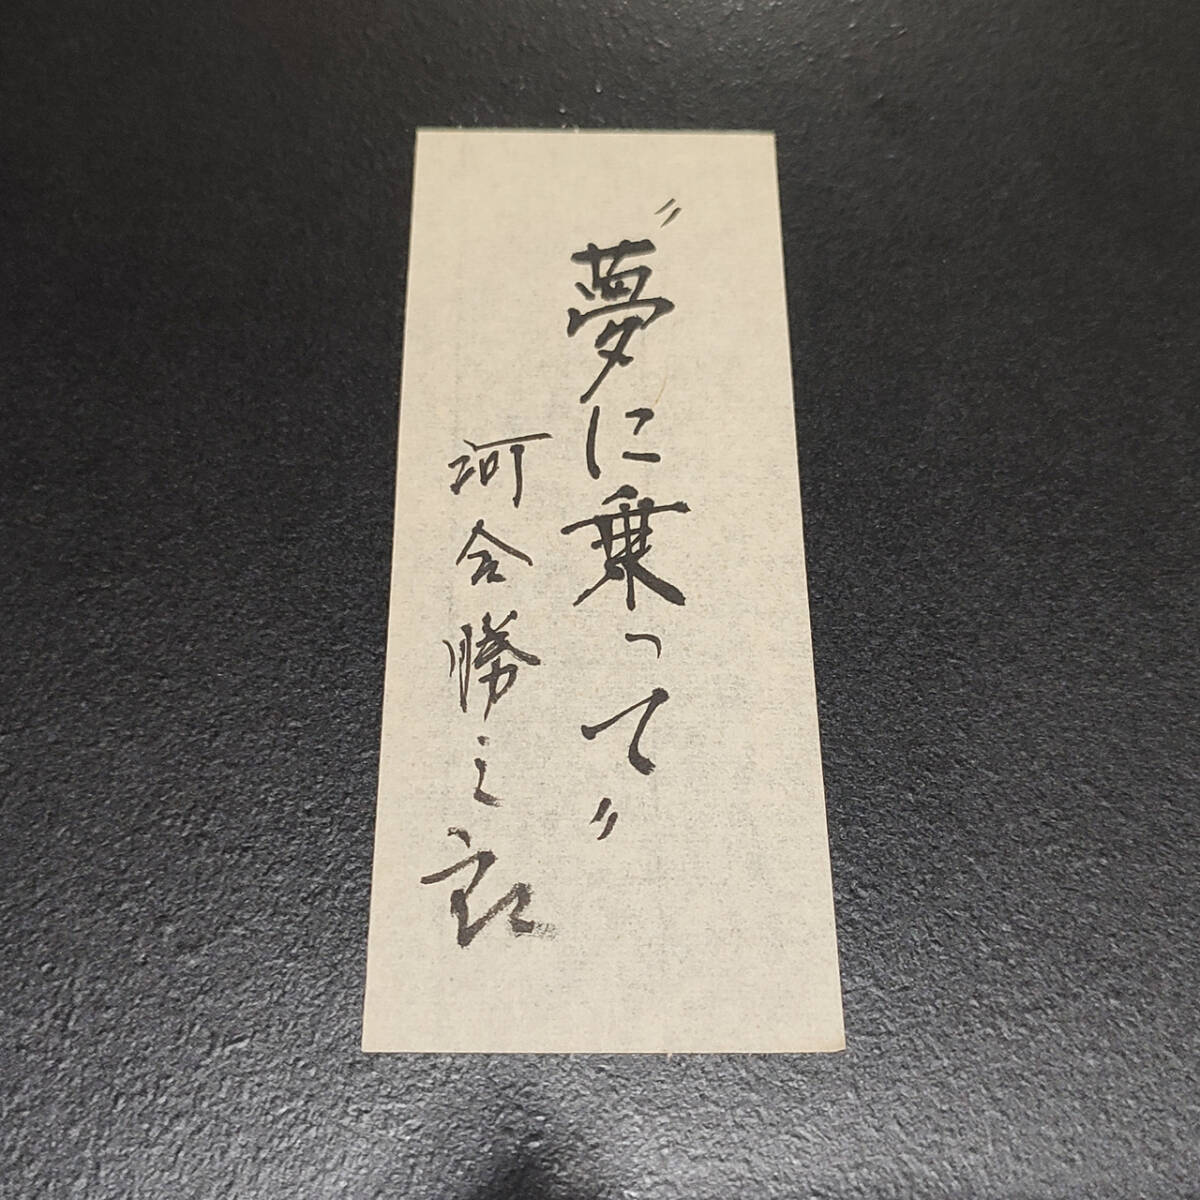 〃夢に乗って〃
河合勝之良